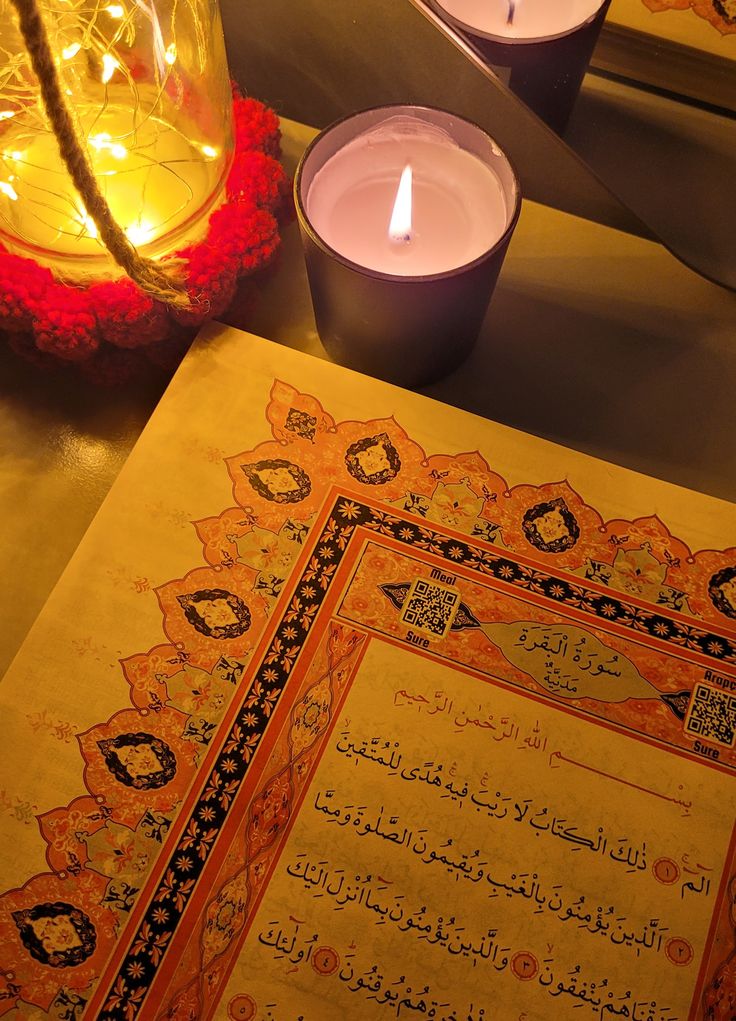 Meal
Sure
سُورَةُ الْبَقَرَةِ
مَدَنِيَّةٌ
Arapça
Sure
بِسْمِ اللهِ الرَّحْمٰنِ الرَّحٖيمِ
الٓمٓ ١ ذٰلِكَ الْكِتَابُ لَا رَيْبَ فٖيهِ هُدًى لِلْمُتَّقٖينَ
٢ اَلَّذٖينَ يُؤْمِنُونَ بِالْغَيْبِ وَيُقٖيمُونَ الصَّلٰوةَ وَمِمَّا
رَزَقْنَاهُمْ يُنْفِقُونَ ٣ وَالَّذٖينَ يُؤْمِنُونَ بِمَٓا اُنْزِلَ اِلَيْكَ
هُمْ يُوقِنُونَ ٤ اُولٰٓئِكَ
٥